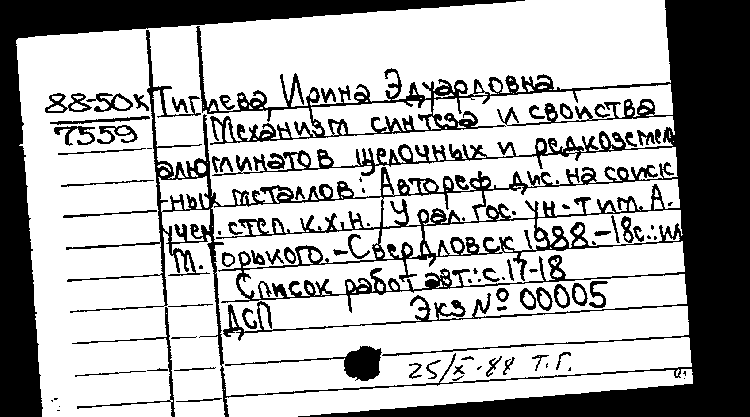 88-50к Тигиева, Ирина Эдуардовна.
7559 Механизм синтеза и свойства
алюминатов щелочных и редкоземель
ных металлов: Автореф. дис. на соиск
учен. степ. к.х.н. / Урал. гос. ун-т им. А.
М. Горького.-Свердловск, 1988.-18с.:ил
Список работ авт.: с.17-18
ДСП Экз № 00005
25/X-88 Т.Г.